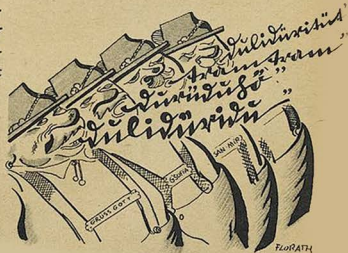 dulidüritüt
tram tram"
"durüduhö"
dülidüridu"
GRÜSS GOTT
GLORIA
SAN-MIRZL
FLORATH